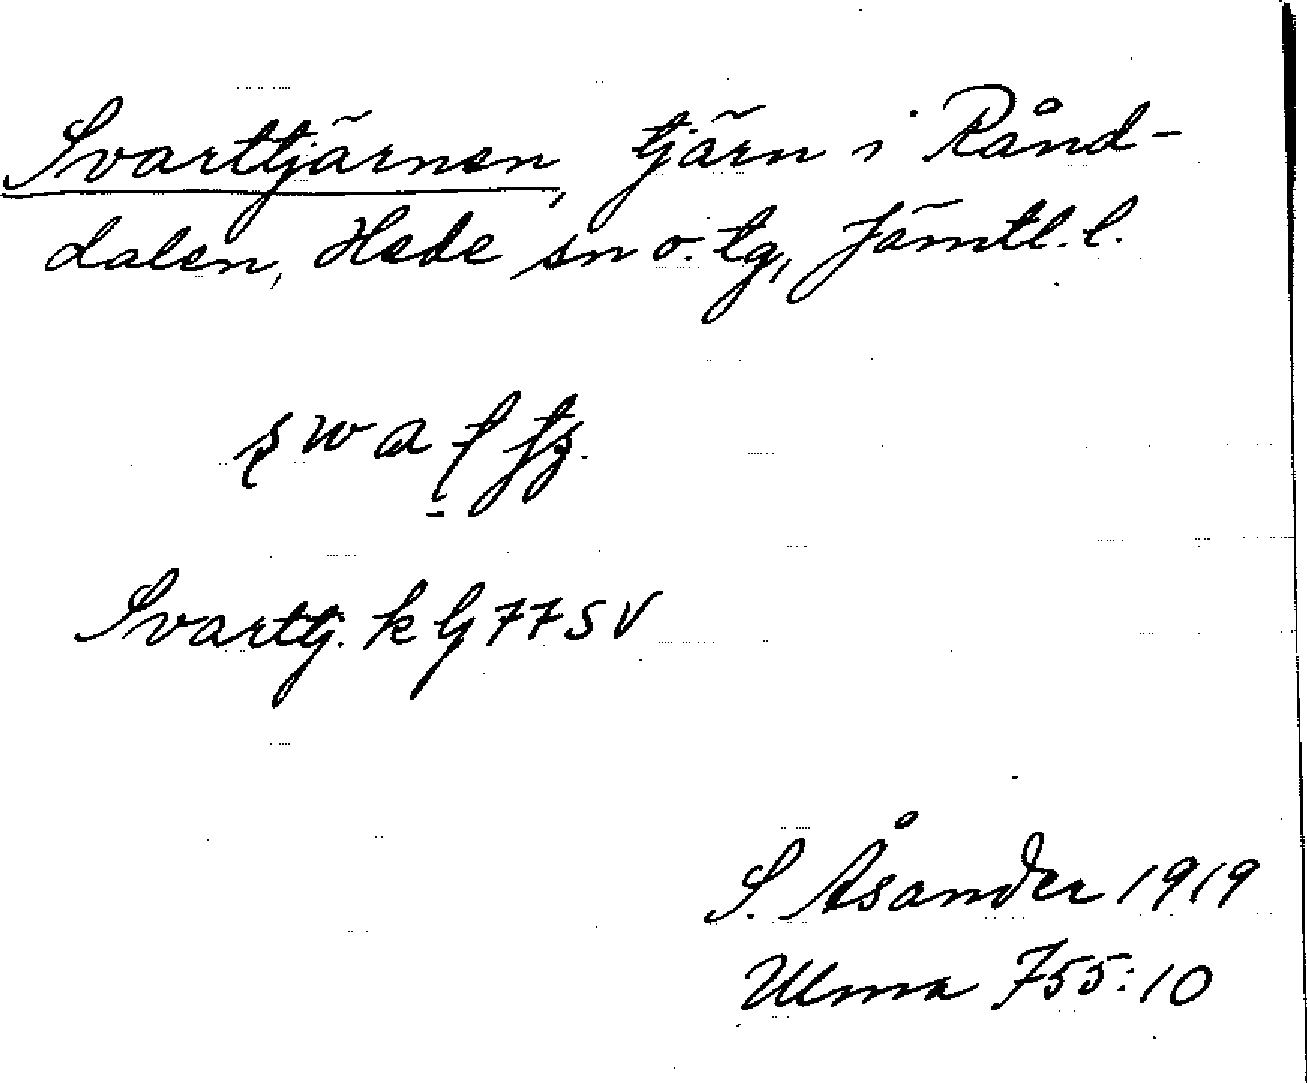 Svarttjärnen, tjärn i Rånd-
dalen, Hede sn o. tg, Jämtl. l.
Svarttj. k G 77 SV
S. Åsander 1919
Ulma 755:10